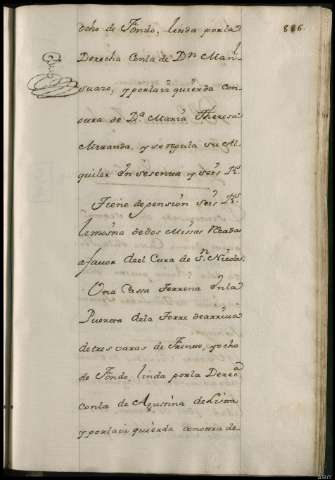 886.
ocho de Fondo, linda por la
Derecha con la de Dn. Manl.
Suaro, y por la izquierda con
de Da. Maria Theresa
Miranda, y se regula su Al-
quiler en sesenta y seis Rs.
Tiene de pensión seis Rs.
lemosna de dos Missas Rezadas
a favor del Cura de Sn. Nicolas.
Una Casa Terrena en la
Puerta de la Torre de arriva
de tres varas de Frente, y ocho
de Fondo, linda por la Derecha
con la de Agustina de Luna
y por la izquierda con otra de